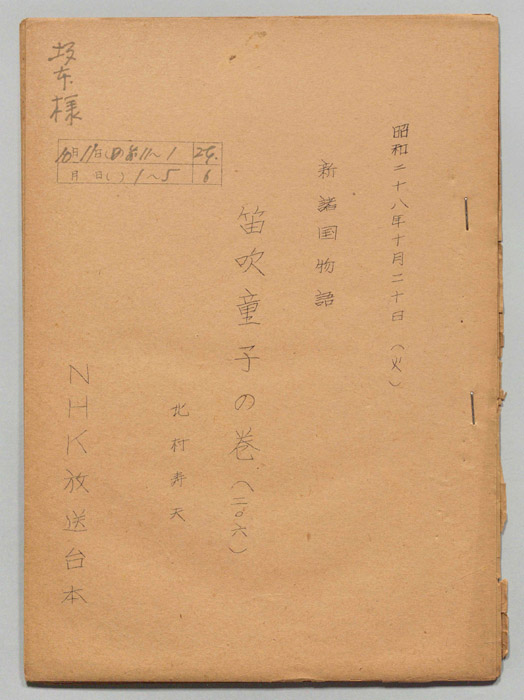 昭和二十八年十月二十日（火）
新諸国物語
笛吹童子の巻（二〇六）
北村寿夫
NHK放送台本
坂東様
10月17日( ) 11～1 24.
月 日( ) 1～5 6